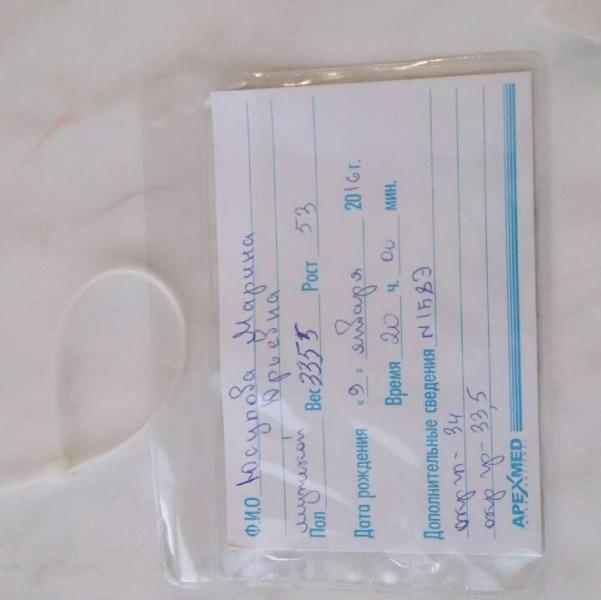 Ф.И.О Юсупова Марина
Юрьевна
Пол мужской Вес 3355 Рост 53
Дата рождения «9» января 2016 г.
Время 20 ч. 00 мин.
Дополнительные сведения N1583
окр гл - 34
окр гр - 33,5
APEXMED